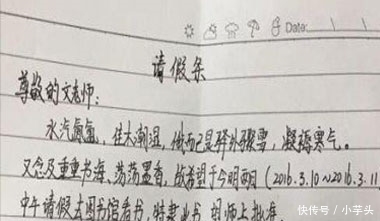 Date:
请假条
尊敬的文老师：
水汽氤氲，佳木潮湿，俄而已是驿外骤雪，凝聚寒气。
又念及重重书海、荡荡墨香，故希望于今明两日（2016.3.10~2016.3.11
中午请假去图书馆看书，特书此书，望师上批准
快传号/小芋头